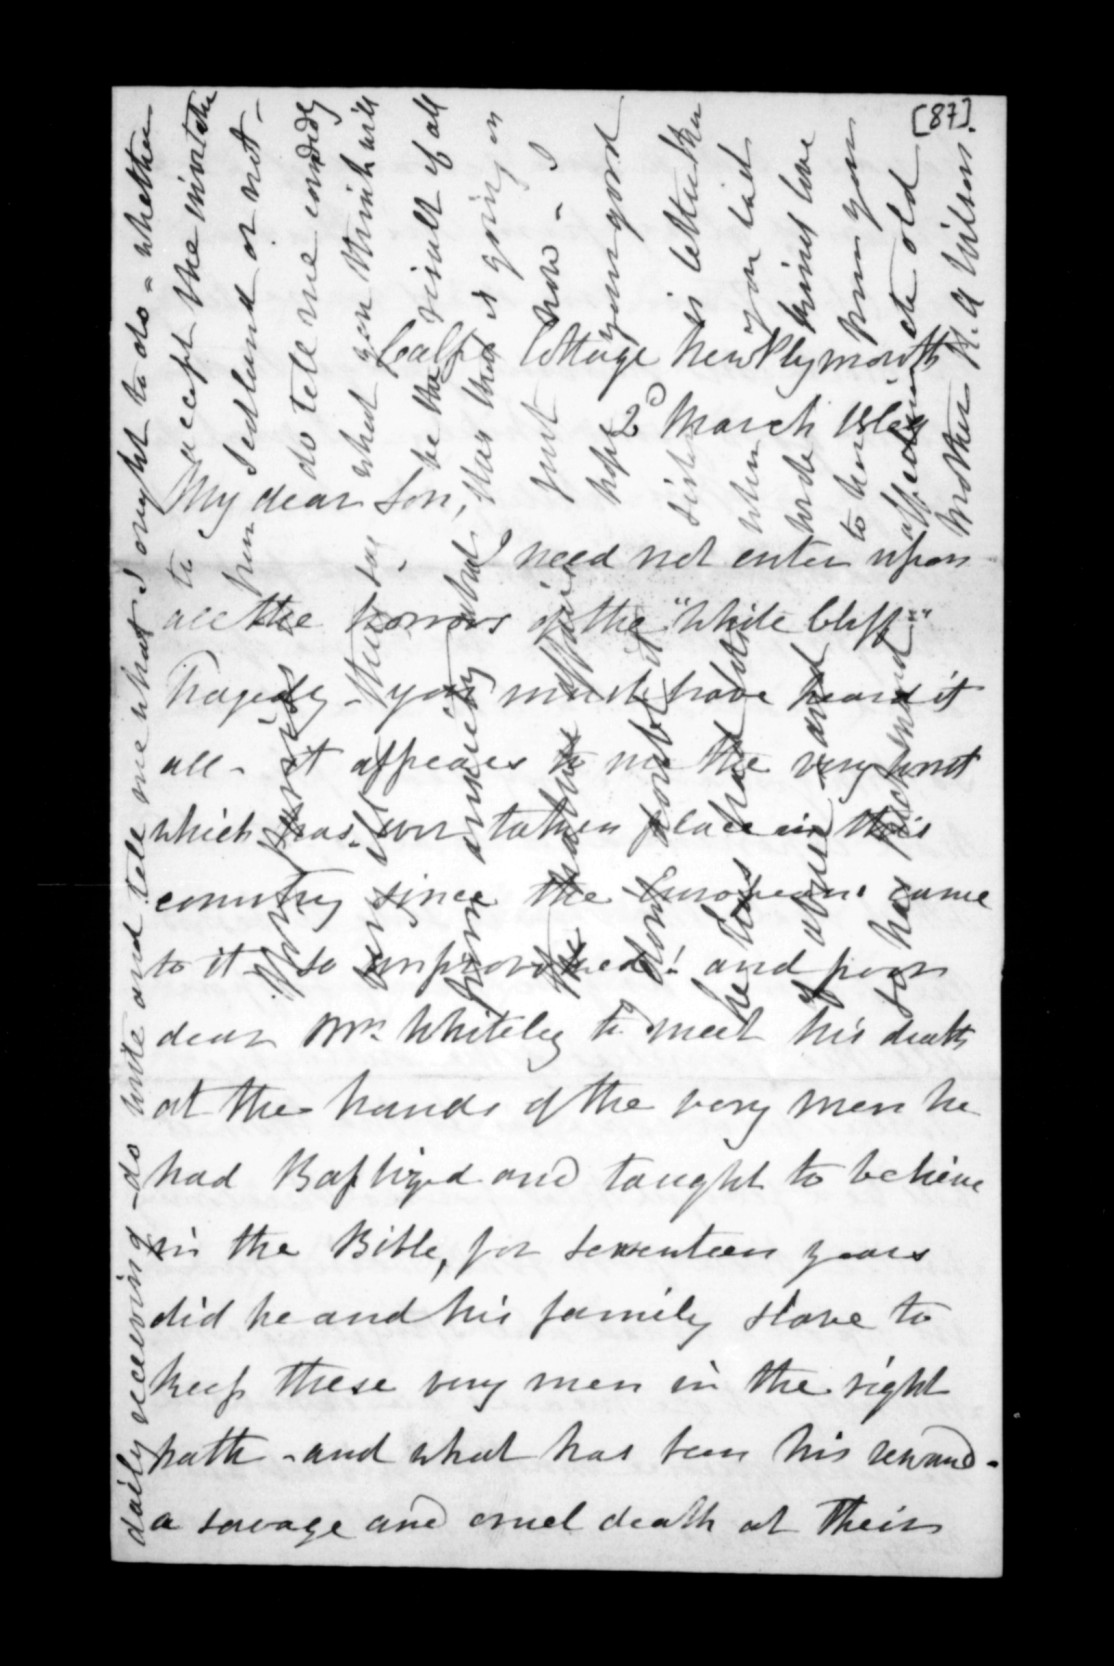 [87].
Calpe Cottage New Plymouth
2d March 1869
My dear Son,
I need not enter upon
all the horrors of the "White Cliff"
Tragedy - you must have heard it
all - it appears to me the very worst
which has ever taken place in this
country since the Europeans came
to it - so unprovoked! and poor
dear Mr. Whiteley to meet his death
at the hands of the very men he
had Baptized and taught to believe
in the Bible, for seventeen years
did he and his family slave to
keep these very men in the right
path - and what has been his reward -
a savage and cruel death at their
daily receiving - do write and tell me what I ought to do - whether
to accept the invitation
from Sealand or not -
do tell me candidly
what you think will
be the result of all
this that is going on
just now - I
hope your good
sister is better than
when you last
wrote kind love
to her from your
affectionate old
Mother M. A Wilson
the nature
don't doubt it
he has had
of ague - and